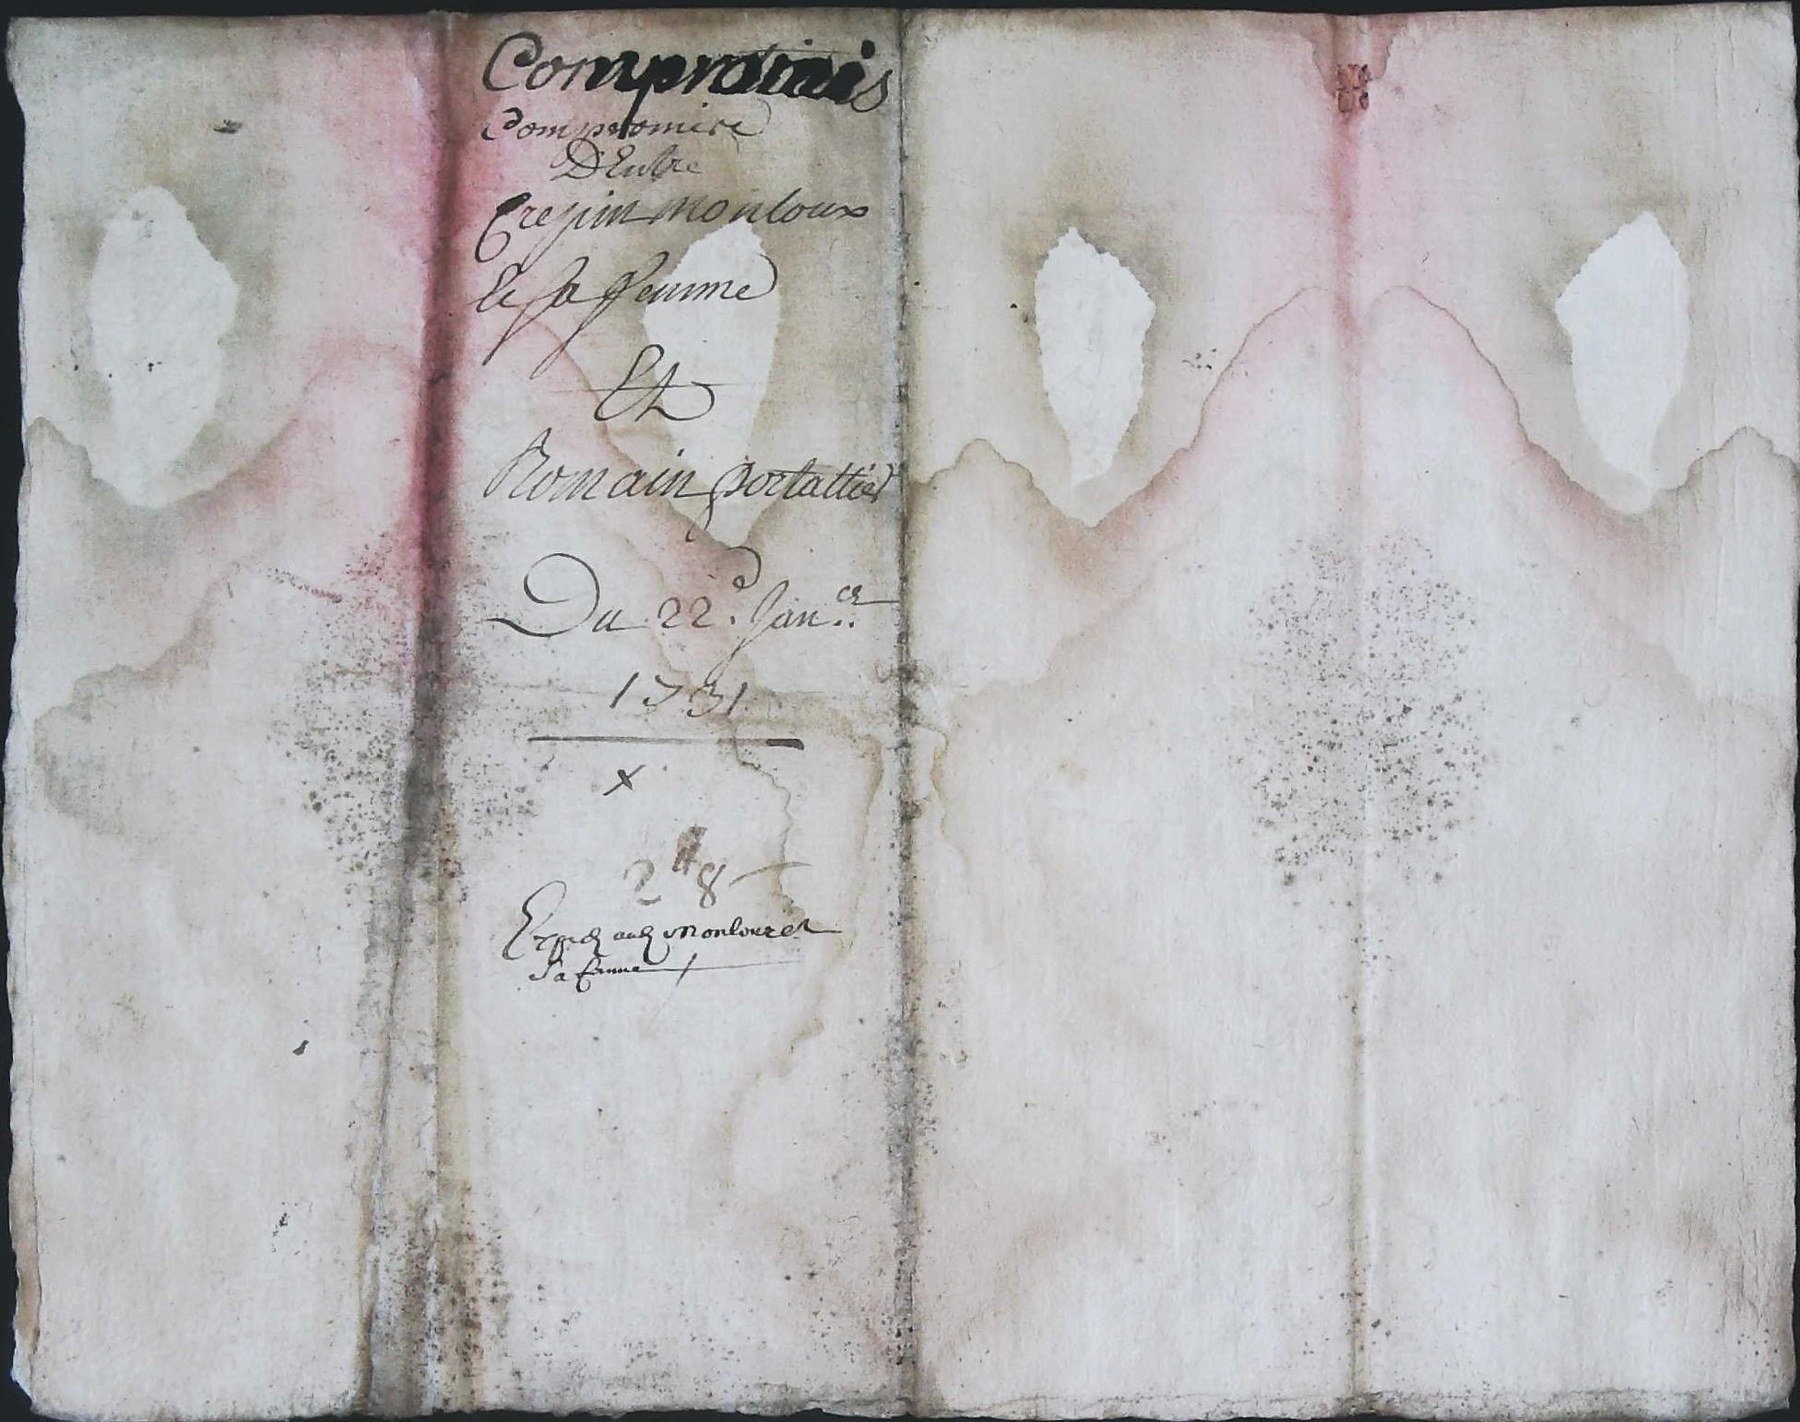 Compromis
Compromise
D'Entre
Crepin monloux
Et sa femme
Et
Romain portattier
Du 22e Jan.er
1731
x
2 # 8
Exped aud monlouxet
sa femme